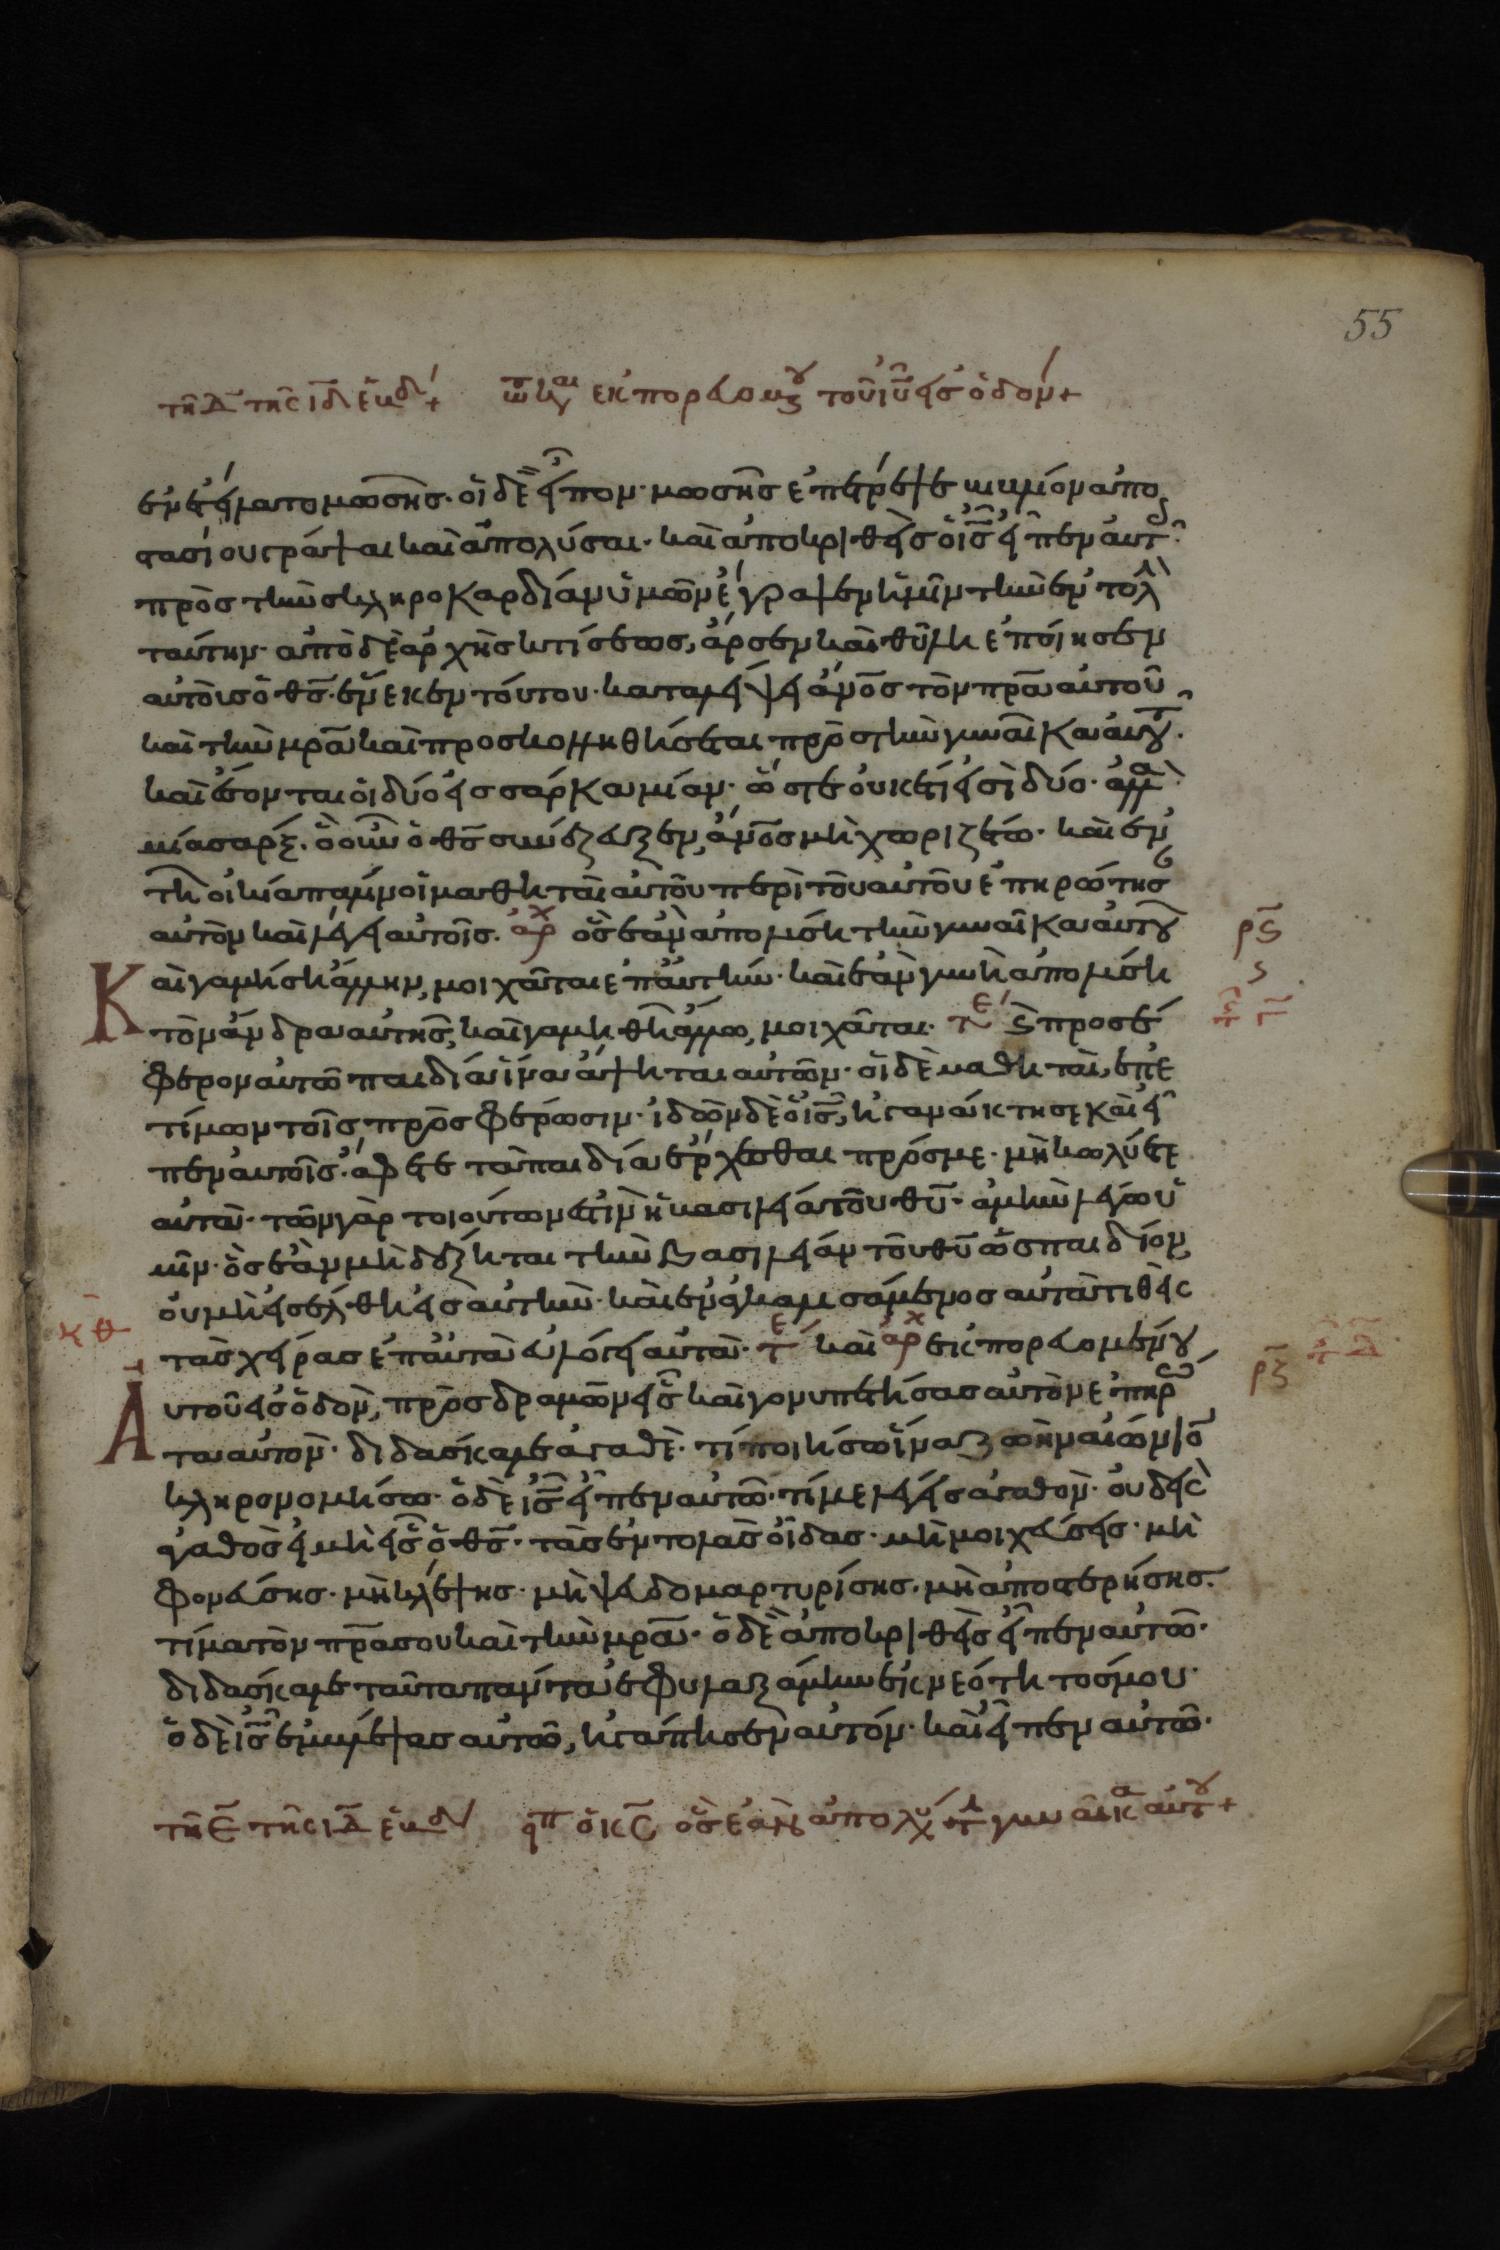 55
τῆ δ̄ τῆς ιδ̄ ἑβδ + τῶ κ αι ἐκπορευομ ου τοῦ ιῦ εἰς ὁδόν +
ἐνετείλατο μωσῆς· οἱ δὲ εἶπον· μωσῆς ἐπέτρεψε βιβλίον ἀπο
στασίου γράψαι καὶ ἀπολύσαι· καὶ ἀποκριθεὶς ὁ ις̄ εἶπεν αὐτ
πρὸς τὴν σκληροκαρδίαν ὑμῶν ἔγραψεν ὑμῖν τὴν ἐντολ
ταύτην· ἀπὸ δὲ ἀρχῆς κτίσεως, ἄρσεν καὶ θῆλη ἐποίησεν
αὐτοὺς ὁ θς̄· ἕνεκεν τούτου· καταλείψει ἀνος̄ τὸν πρᾱ αὐτοῦ
καὶ τὴν μρᾱ καὶ προσκολληθήσεται πρὸς τὴν γυναῖκα αὐτοῦ·
καὶ ἔσονται οἱ δύο εἰς σάρκα μίαν· ὥστε οὐκέτι εἰσὶ δύο· ἀλλὰ
μία σάρξ· ὃ οὖν ὁ θς̄ συνέζευξεν, ἀνος̄ μὴ χωριζέτω· καὶ ἐν
τῆ οἰκία πάλιν οἱ μαθηταὶ αὐτοῦ περὶ τοῦ αὐτοῦ ἐπηρώτησ
αὐτὸν καὶ λέγει αὐτοῖς· ἀρχ ὃς ἐὰν ἀπολύση τὴν γυναῖκα αὐτοῦ
ρς̄
ς
Καὶ γαμήση ἄλλην, μοιχᾶται ἐπ' αὐτήν· καὶ ἐὰν γυνὴ ἀπολύση
τὸν ἄνδρα αὐτῆς, καὶ γαμηθῆ ἄλλω, μοιχᾶται· τε ς προσέ
φερον αὐτῶ παιδία ἵνα ἅψηται αὐτῶν· οἱ δὲ μαθηταὶ, ἐπε
τίμων τοῖς προσφέρωσιν· ἰδὼν δὲ ὁ ις̄, ἠγανάκτησε καὶ εἶ
πεν αὐτοῖς· ἄφετε τὰ παιδία ἔρχεσθαι πρός με· μὴ κωλύετε
αὐτά· τῶν γὰρ τοιούτων ἐστὶν ἡ βασιλεία τοῦ θῡ· ἀμὴν λέγω ὑ
μῖν· ὃς ἐὰν μὴ δέξηται τὴν βασιλείαν τοῦ θῡ ὡς παιδίον
οὐ μὴ εἰσέλθη εἰς αὐτήν· καὶ ἐναγκαλισάμενος αὐτὰ τιθεὶς
κθ
τὰς χεῖρας ἐπ' αὐτὰ εὐλόγει αὐτά· τε καὶ ἀρχ ἐκπορευομένου
ρζ̄
Αὐτοῦ εἰς ὁδὸν, προσδραμὼν εἷς καὶ γονυπετήσας αὐτὸν ἐπηρώ
τα αὐτόν· διδάσκαλε ἀγαθὲ· τί ποιήσω ἵνα ζωὴν αἰώνιον
κληρονομήσω· ὁ δὲ ις̄ εἶπεν αὐτῶ· τί με λέγεις ἀγαθόν· οὐδεὶς
ἀγαθὸς εἰ μὴ εἷς ὁ θς̄· τὰς ἐντολὰς οἶδας· μὴ μοιχεύσεις· μὴ
φονεύσης· μὴ κλέψης· μὴ ψευδομαρτυρίσης· μὴ ἀποστερήσης·
τίμα τὸν πρᾱ σου καὶ τὴν μρᾱ· ὁ δὲ ἀποκριθεὶς εἶπεν αὐτῶ·
διδάσκαλε ταῦτα πάντα ἐφυλαξάμην ἐκ νεότητός μου·
ὁ δὲ ις̄ ἐμβλέψας αὐτῶ, ἠγάπησεν αὐτόν· καὶ εἶπεν αὐτῶ·
τῆ ε̄ τῆς ιδ̄ ἑβδ εἶπ ὁ κς̄ ὃς ἐὰν ἀπολύ τ γυναῖκα αὐτοῦ +